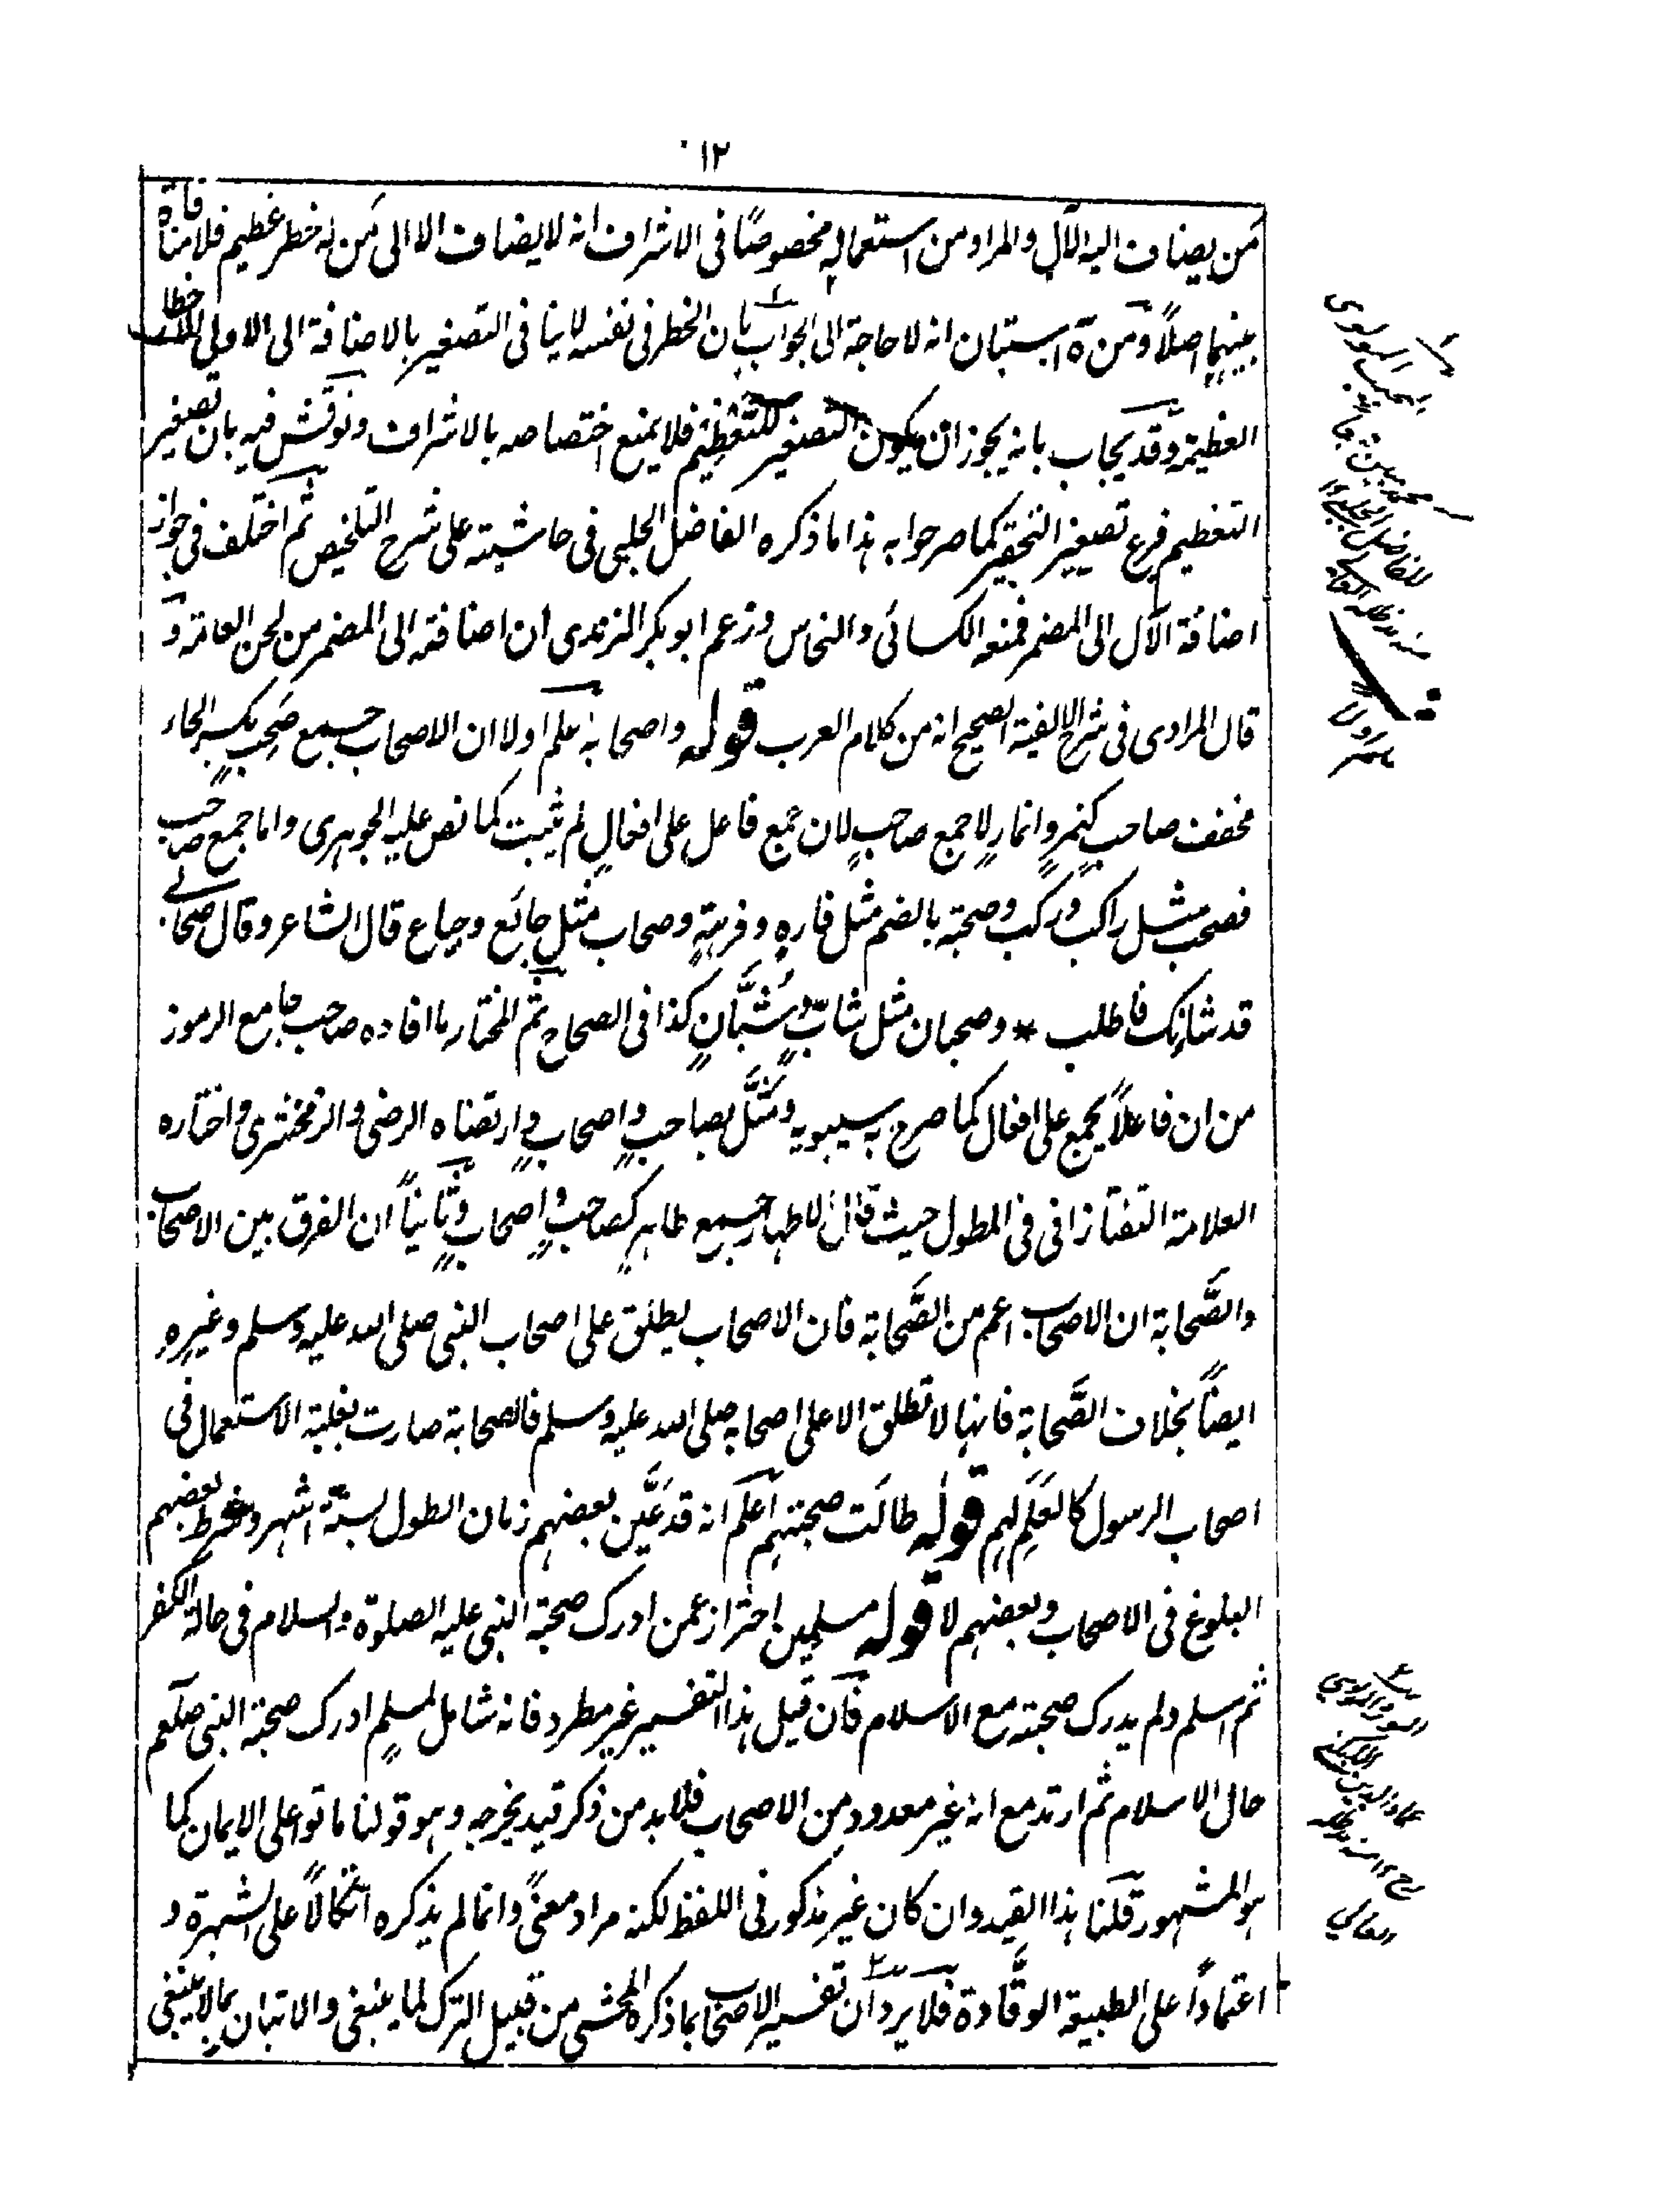 ١٢
من يضاف اليه الآل والمراد من استعماله مخصوصًا فى الاشراف انه لا يضاف الا الى من له خطر عظيم فلا منافاة
بينهما اصلاً ومن ههنا استبان انه لا حاجة الى الجواب بان الخطر فى نفسه لا ينافى التصغير بالاضافة الى الاولى الاخطار
العظيمة وقد يجاب بانه يجوز ان يكون التصغير للتعظيم فلا يمنع اختصاصه بالاشراف ونوقش فيه بان تصغير
التعظيم فرع تصغير التحقير كما صرحوا به هذا ما ذكره الفاضل الجلبى فى حاشيته على شرح التلخيص ثم اختلف فى جواز
اضافة الآل الى المضمر فمنعه الكسائى والنحاس وزعم ابو بكر الزبدى ان اضافته الى المضمر من لحن العامة و
قال المرادى فى شرح الالفية الصحيح انه من كلام العرب قوله واصحابه اعلم اولا ان الاصحاب جمع صَحِبٍ بكسر الحاء
مخفف صاحب كنمرٍ وانمارٍ لا جمع صاحبٍ لان جمع فاعل على افعالٍ لم يثبت كما نص عليه الجوهرى واما جمع صاحب
فصحب مثل راكب وركب وصحبة بالضم مثل فارهٍ وفرهةٍ وصحاب مثل جائع وجياع قال الشاعر وقال صحابى
قد شانك فاطلب * وصحبان مثل شابٍّ وشُبَّانٍ كذا فى الصحاح ثم المختار ما افاده صاحب جامع الرموز
من ان فاعلاً يجمع على افعال كما صرح به سيبويه ومَثَّلَ بصاحبٍ واصحابٍ وارتضاه الرضى والزمخشرى واختاره
العلامة التفتازانى فى المطول حيث قال الاطهار جمع طاهرٍ كصاحبٍ واصحابٍ وثانياً ان الفرق بين الاصحاب
والصَّحابة ان الاصحاب اعم من الصَّحابة فان الاصحاب يطلق على اصحاب النبى صلى الله عليه وسلم وغيرهِ
ايضاً بخلاف الصَّحابة فانها لا تطلق الا على اصحابه صلى الله عليه وسلم فالصحابة صارت بغلبة الاستعمال فى
اصحاب الرسول كالعَلَمِ لهم قوله طالَت صحبتهم اعلم انه قد عَيَّن بعضهم زمان الطول بستة اشهر وشرط بعضهم
البلوغ فى الاصحاب وبعضهم لا قوله مسلمين احتراز عمن ادرك صحبة النبى عليه الصلوة والسلام فى حالة الكفر
ثم اسلم ولم يدرك صحبته مع الاسلام فان قيل هذا التفسير غير مطرد فانه شامل لمسلمٍ ادرك صحبة النبى صلعم
حال الاسلام ثم ارتد مع انه غير معدود من الاصحاب فلا بد من ذكر قيد يخرجه وهو قولنا ماتوا على الايمان كما
هو المشهور قلنا هذا القيد وان كان غير مذكور فى اللفظ لكنه مراد معنىً وانما لم يذكره اتكالاً على الشهرة و
اعتماداً على الطبيعة الوقَّادة فلا يرد ان تفسير الاصحاب بما ذكره المحشى من قبيل الترك لما ينبغى والاتيان بما لا ينبغى